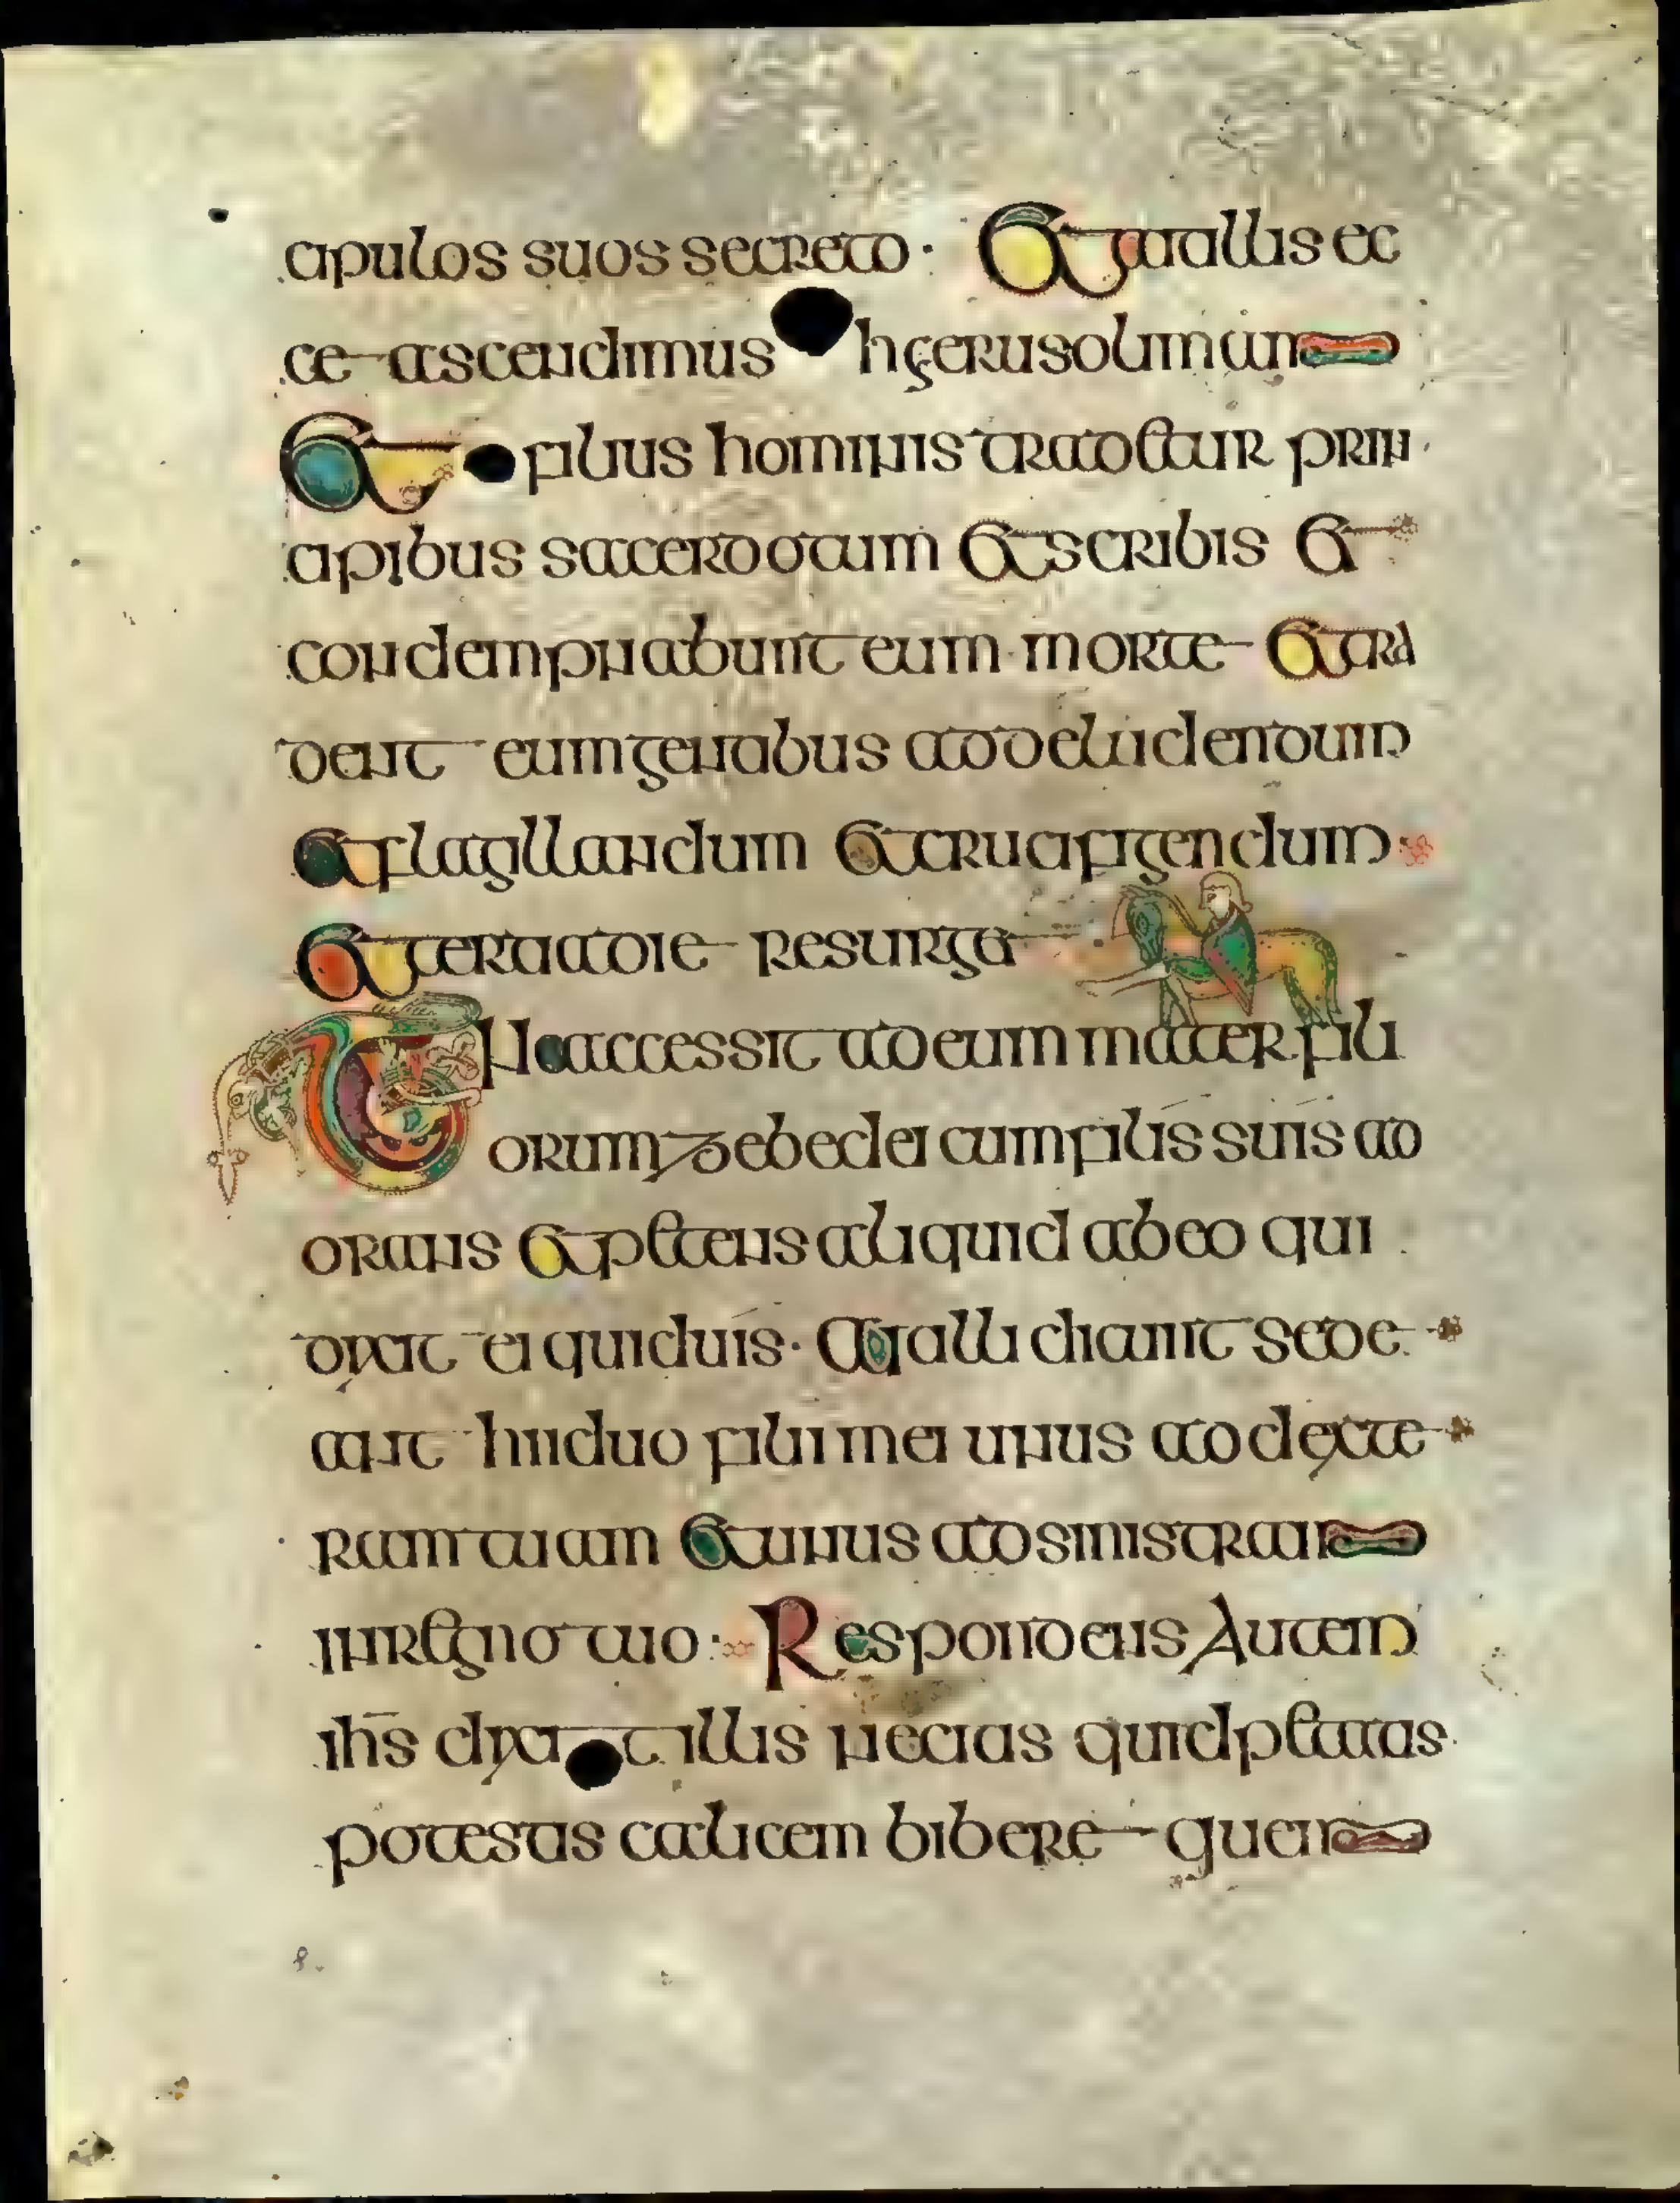 cipulos suos secreto · Et ait illis ec
ce ascendimus hierusolimam
Et filius hominis tradetur prin
cipibus sacerdotum et scribis et
condempnabunt eum morte et tra
dent eum gentibus ad deludendum
et flagillandum et crucifigendum
et tertia die resurget
Tunc accessit ad eum mater fili
orum zebedei cum filis suis ad
orans et petens aliquid ab eo qui
dixit ei quid uis · At illi dicunt sede
ant hii duo filii mei unus ad dexte
ram tuam et unus ad sinistram
in regno tuo : Respondens Autem
ihs dixit illis nescitis quid petatis
potestis calicem bibere quem